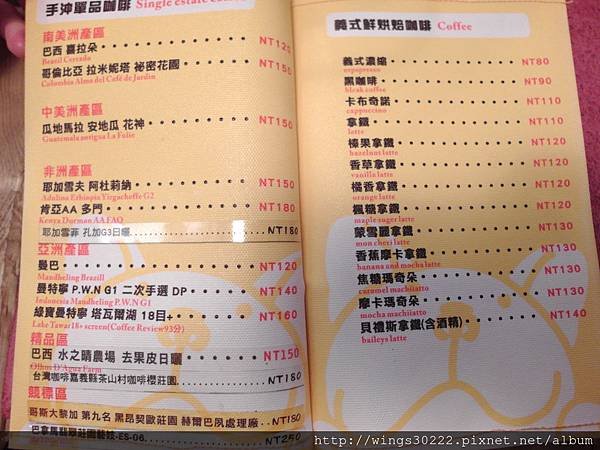 手沖單品咖啡 Single estate coffee
南美洲產區
巴西 喜拉朵 NT120
Brazil Cerrado
哥倫比亞 拉米妮塔 祕密花園 NT150
Colombia Alma del Café de Jardin
中美洲產區
瓜地馬拉 安地瓜 花神 NT150
Guatemala antigua La Folie
非洲產區
耶加雪夫 阿杜莉納 NT150
Adulina Ethiopia Yirgacheffe G2
肯亞AA 多門 NT180
Kenya Dorman AA FAQ
耶加雪菲 孔加G3日曬 NT180
亞洲產區
曼巴 NT120
Mandheling Brazill
曼特寧 P.W.N G1 二次手選 DP NT140
Indonesia Mandheling P.W.N G1
綠寶曼特寧 塔瓦爾湖 18目+ NT160
Lake Tawar18+ screen(Coffee Review93分)
精品區
巴西 水之晴農場 去果皮日曬 NT150
D'Agua Farm
台灣咖啡嘉義縣茶山村咖啡櫻莊園 NT180
競標區
哥斯大黎加 第九名 黑昂契歐莊園 赫爾巴夙處理廠 NT180
巴拿馬翡翠莊園藝妓-ES-06 NT250
義式鮮烘焙咖啡 Coffee
義式濃縮 NT80
espresso
黑咖啡 NT90
bleak coffee
卡布奇諾 NT110
cappuccino
拿鐵 NT110
latte
榛果拿鐵 NT120
hazelnut latte
香草拿鐵 NT120
vanilla latte
橘香拿鐵 NT120
orange latte
楓糖拿鐵 NT120
maple suger latte
蒙雪麗拿鐵 NT130
mon cheri latte
香蕉摩卡拿鐵 NT130
banana and mocha latte
焦糖瑪奇朵 NT130
caramel machiiatto
摩卡瑪奇朵 NT130
mocha machiiatto
貝禮斯拿鐵(含酒精) NT140
baileys latte
http://wings30222.pixnet.net/album